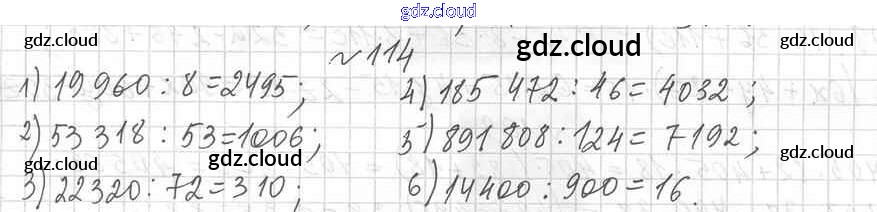 gdz.cloud
gdz.cloud
№ 114
gdz.cloud
gdz.cloud
1) 19 960 : 8 = 2495;
4) 185 472 : 46 = 4032 ;
2) 53 318 : 53 = 1006;
5) 891 808 : 124 = 7192;
gdz.cloud
gdz.cloud
gdz.cloud
3) 22320 : 72 = 310;
6) 14400 : 900 = 16.